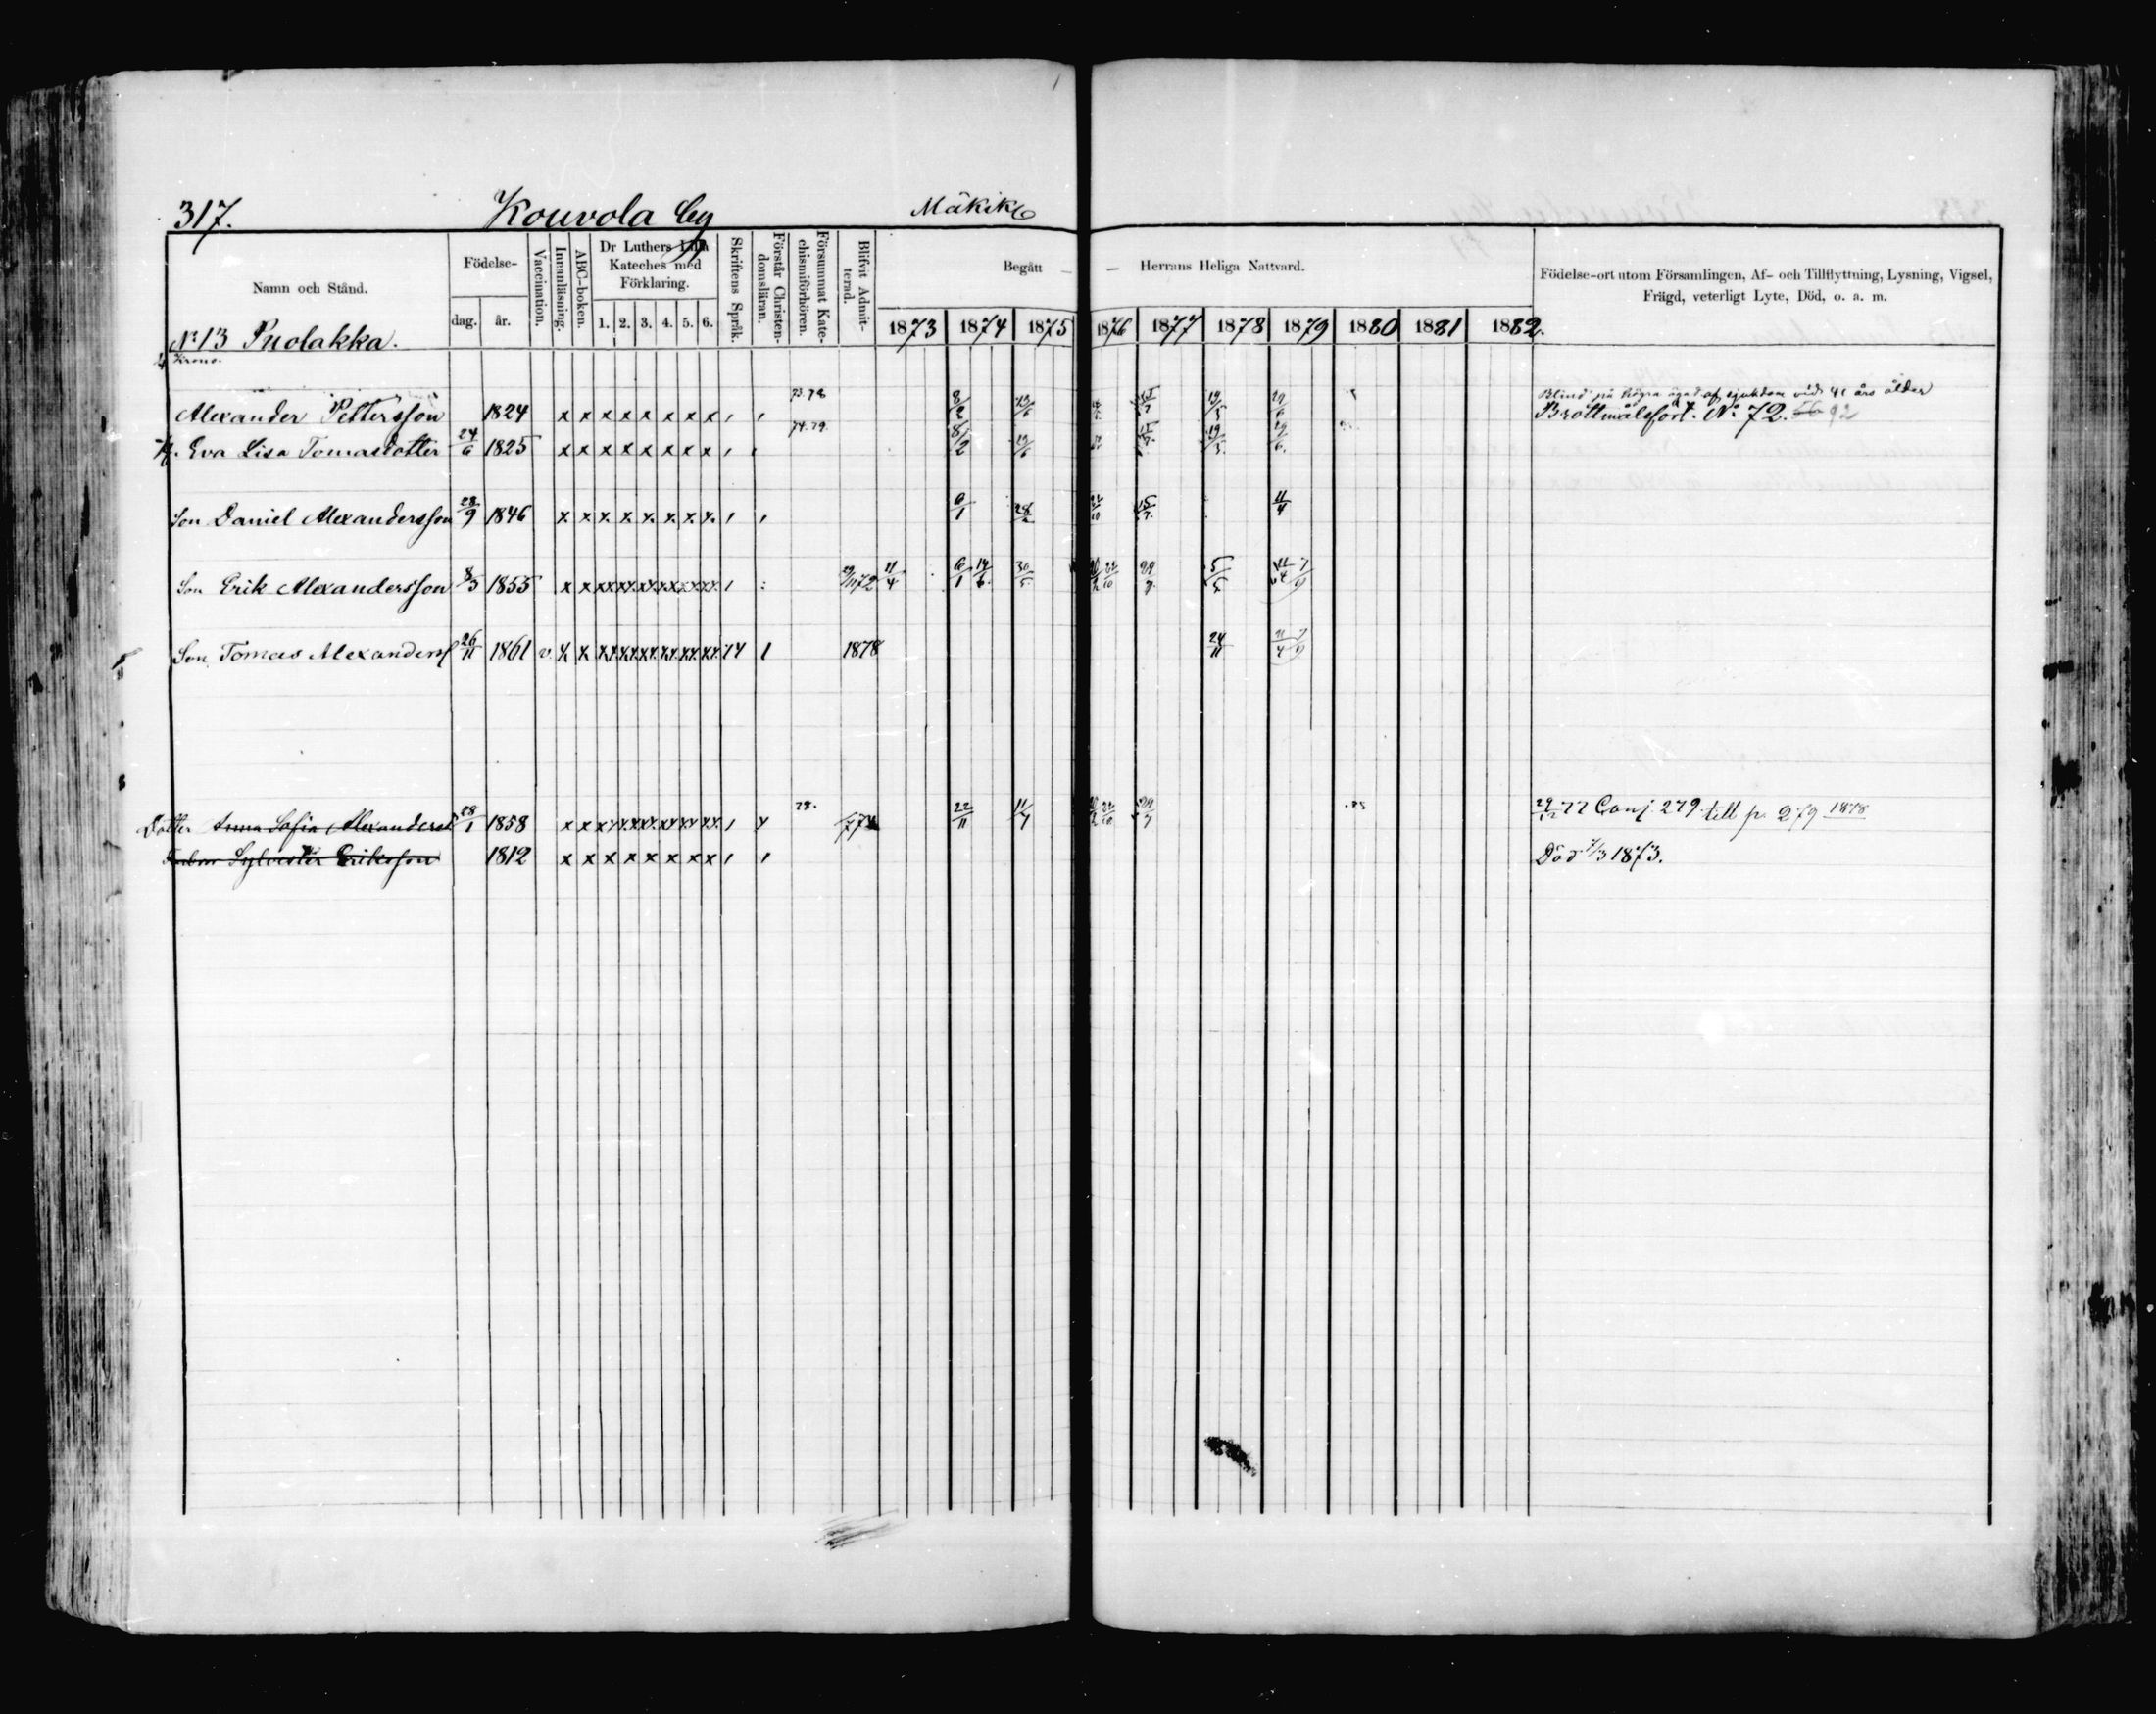 317. Kouvola by Mäkikylä
Namn och Stånd. Födelse- dag. år. Vaccination. Innanläsning. ABC-boken. Dr Luthers Lilla Kateches med Förklaring. 1. 2. 3. 4. 5. 6. Skriftens Språk. Förstår Christendomsläran. Försummat Katechismiförhören. Blifvit Admitterad. Begått — — Herrans Heliga Nattvard. Födelse-ort utom Församlingen, Af- och Tillflyttning, Lysning, Vigsel, Frägd, veterligt Lyte, Död, o. a. m.
1873 1874 1875 1876 1877 1878 1879 1880 1881 1882.
No 13 Puolakka.
Krono.
73. 78 Blind på högra ögat af sjukdom vid 41 års ålder
Alexander Pettersson 1824 x x x x x x x x 8/2 13/6 15/7 19/5 29/6 Brottmålsfört. No 72.
74. 79.
H. Eva Lisa Tomasdotter 24/6 1825 x x x x x x x x 8/2 13/6 15/7. 19/5. 29/6.
Son Daniel Alexandersson 28/9 1846 x x x x x x x x 6/1 22/10 15/7. 11/4
Son Erik Alexandersson 8/5 1855 x x xx xx xx xx xx xx 1872 11/4 6/1 14/6. 30/5. 22/10 29/7. 5/5 11/4 7/9
Son Tomas Alexanderss 26/11 1861 v. x x xx xx xx xx xx xx 14 1 1878 24/11 11/4 7/9
78.
Dotter Anna Sofia Alexandersd 28/1 1858 x x xx xx xx xx xx xx 774 22/11 11/4 22/10 29/7 29/12 77 Conj. 279 till p. 279 1878
Sylvester Eriksson 1812 x x x x x x x x Död 7/3 1873.